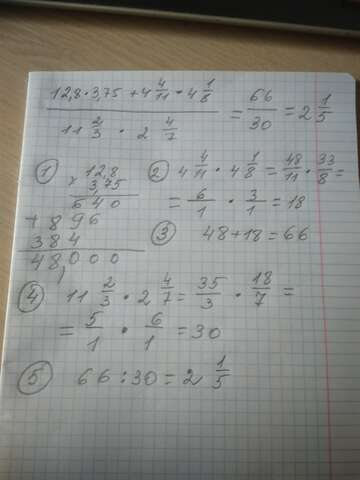 12,8 · 3,75 + 4 4/11 · 4 1/8
11 2/3 · 2 4/7
= 66/30 = 2 1/5
① 12,8
× 3,75
640
+ 896
384
48,000
② 4 4/11 · 4 1/8 = 48/11 · 33/8 =
= 6/1 · 3/1 = 18
③ 48 + 18 = 66
④ 11 2/3 · 2 4/7 = 35/3 · 18/7 =
= 5/1 · 6/1 = 30
⑤ 66 : 30 = 2 1/5